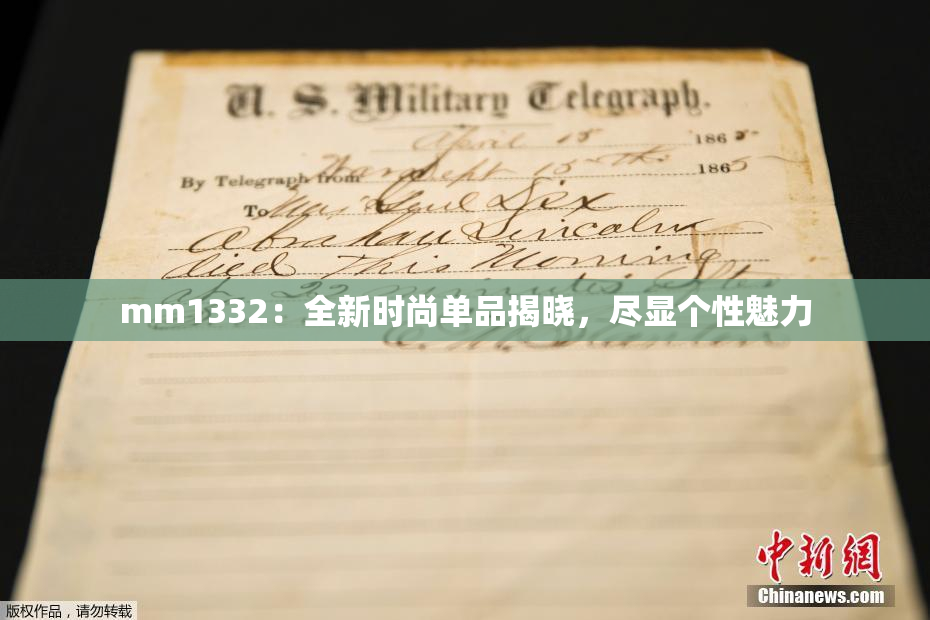 U. S. Military Telegraph.
April 15 1865
By Telegraph from War Dept 15th 1865
To Maj Genl Dix
Abraham Lincoln
died This Morning
at 22 minutes after
mm1332：全新时尚单品揭晓，尽显个性魅力
E. M. Stanton
中新网
Chinanews.com
版权作品，请勿转载